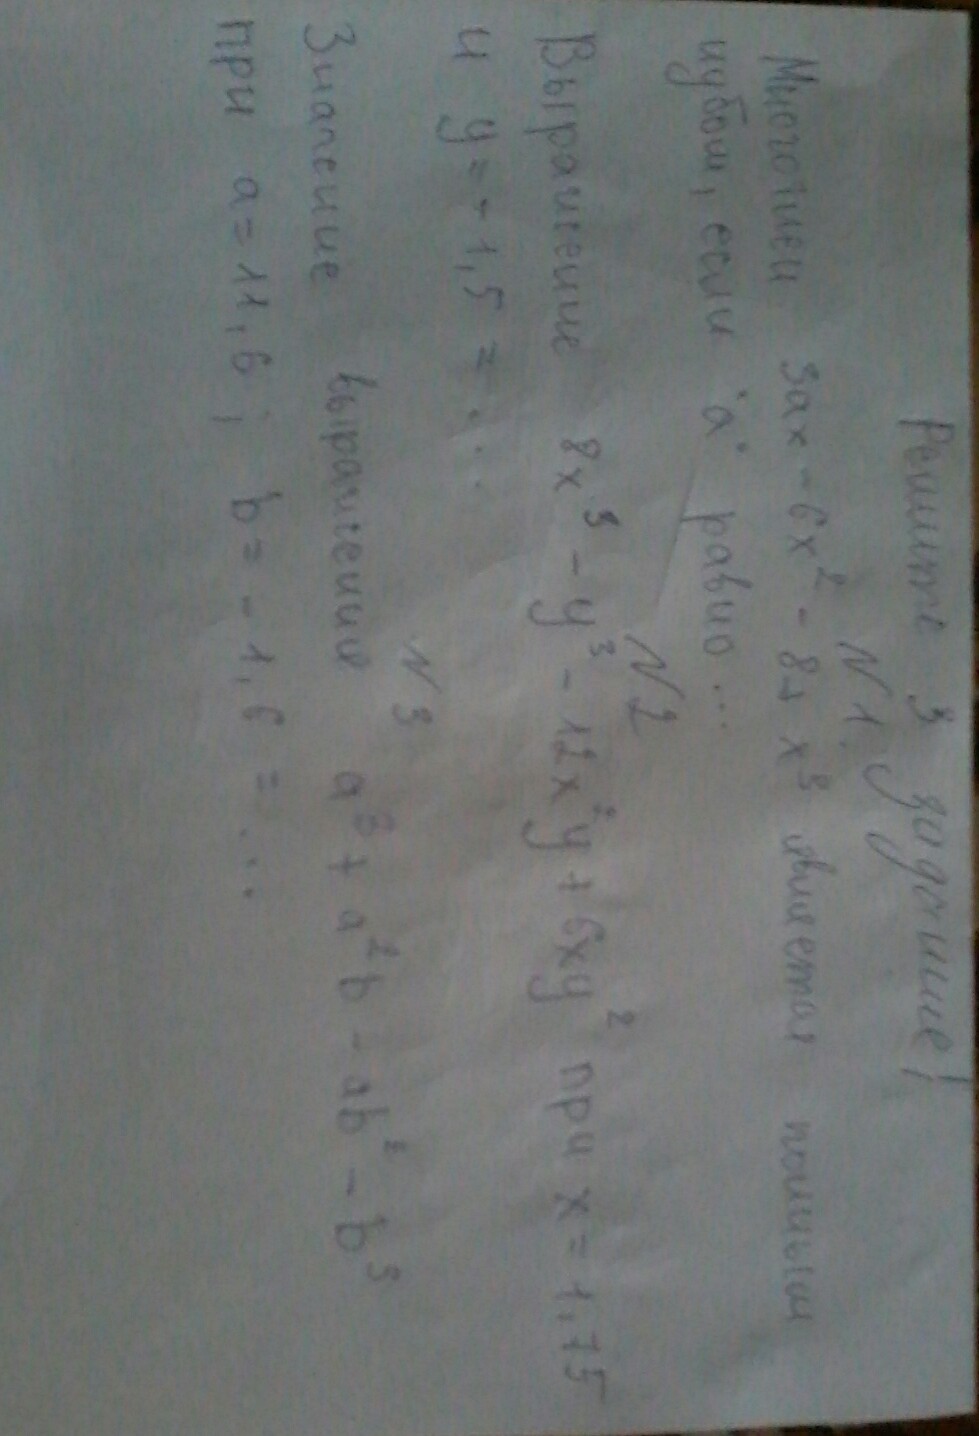 Решите 3 задание!
N1.
Многочлен 3ax - 6x² - 8 + x³ является полным
кубом, если "a" равно ...
N2
Выражение 8x³ - y³ - 12x²y + 6xy² при x = 1,75
и y = -1,5 = ...
N3
Значение выражения a³ + a²b - ab² - b³
при a = 11,6; b = -1,6 = ...